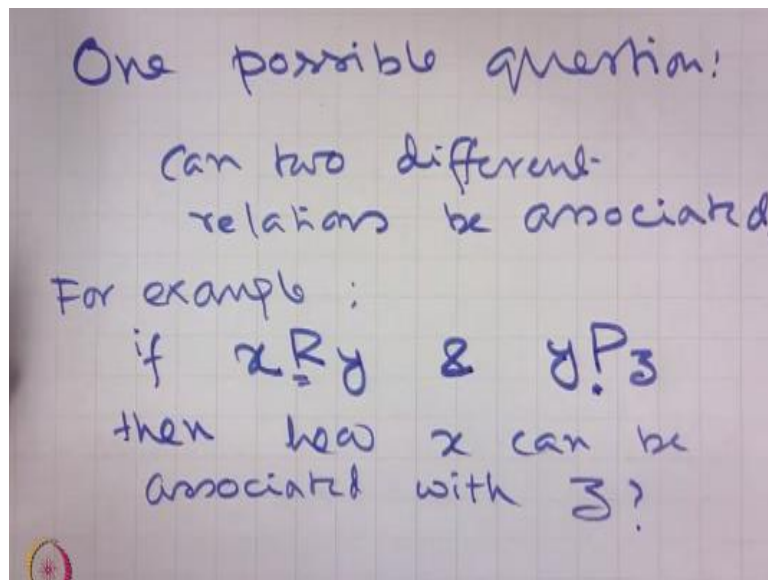 One possible question:
Can two different
relations be associated
For example :
if xRy & yPz
then how x can be
associated with z?